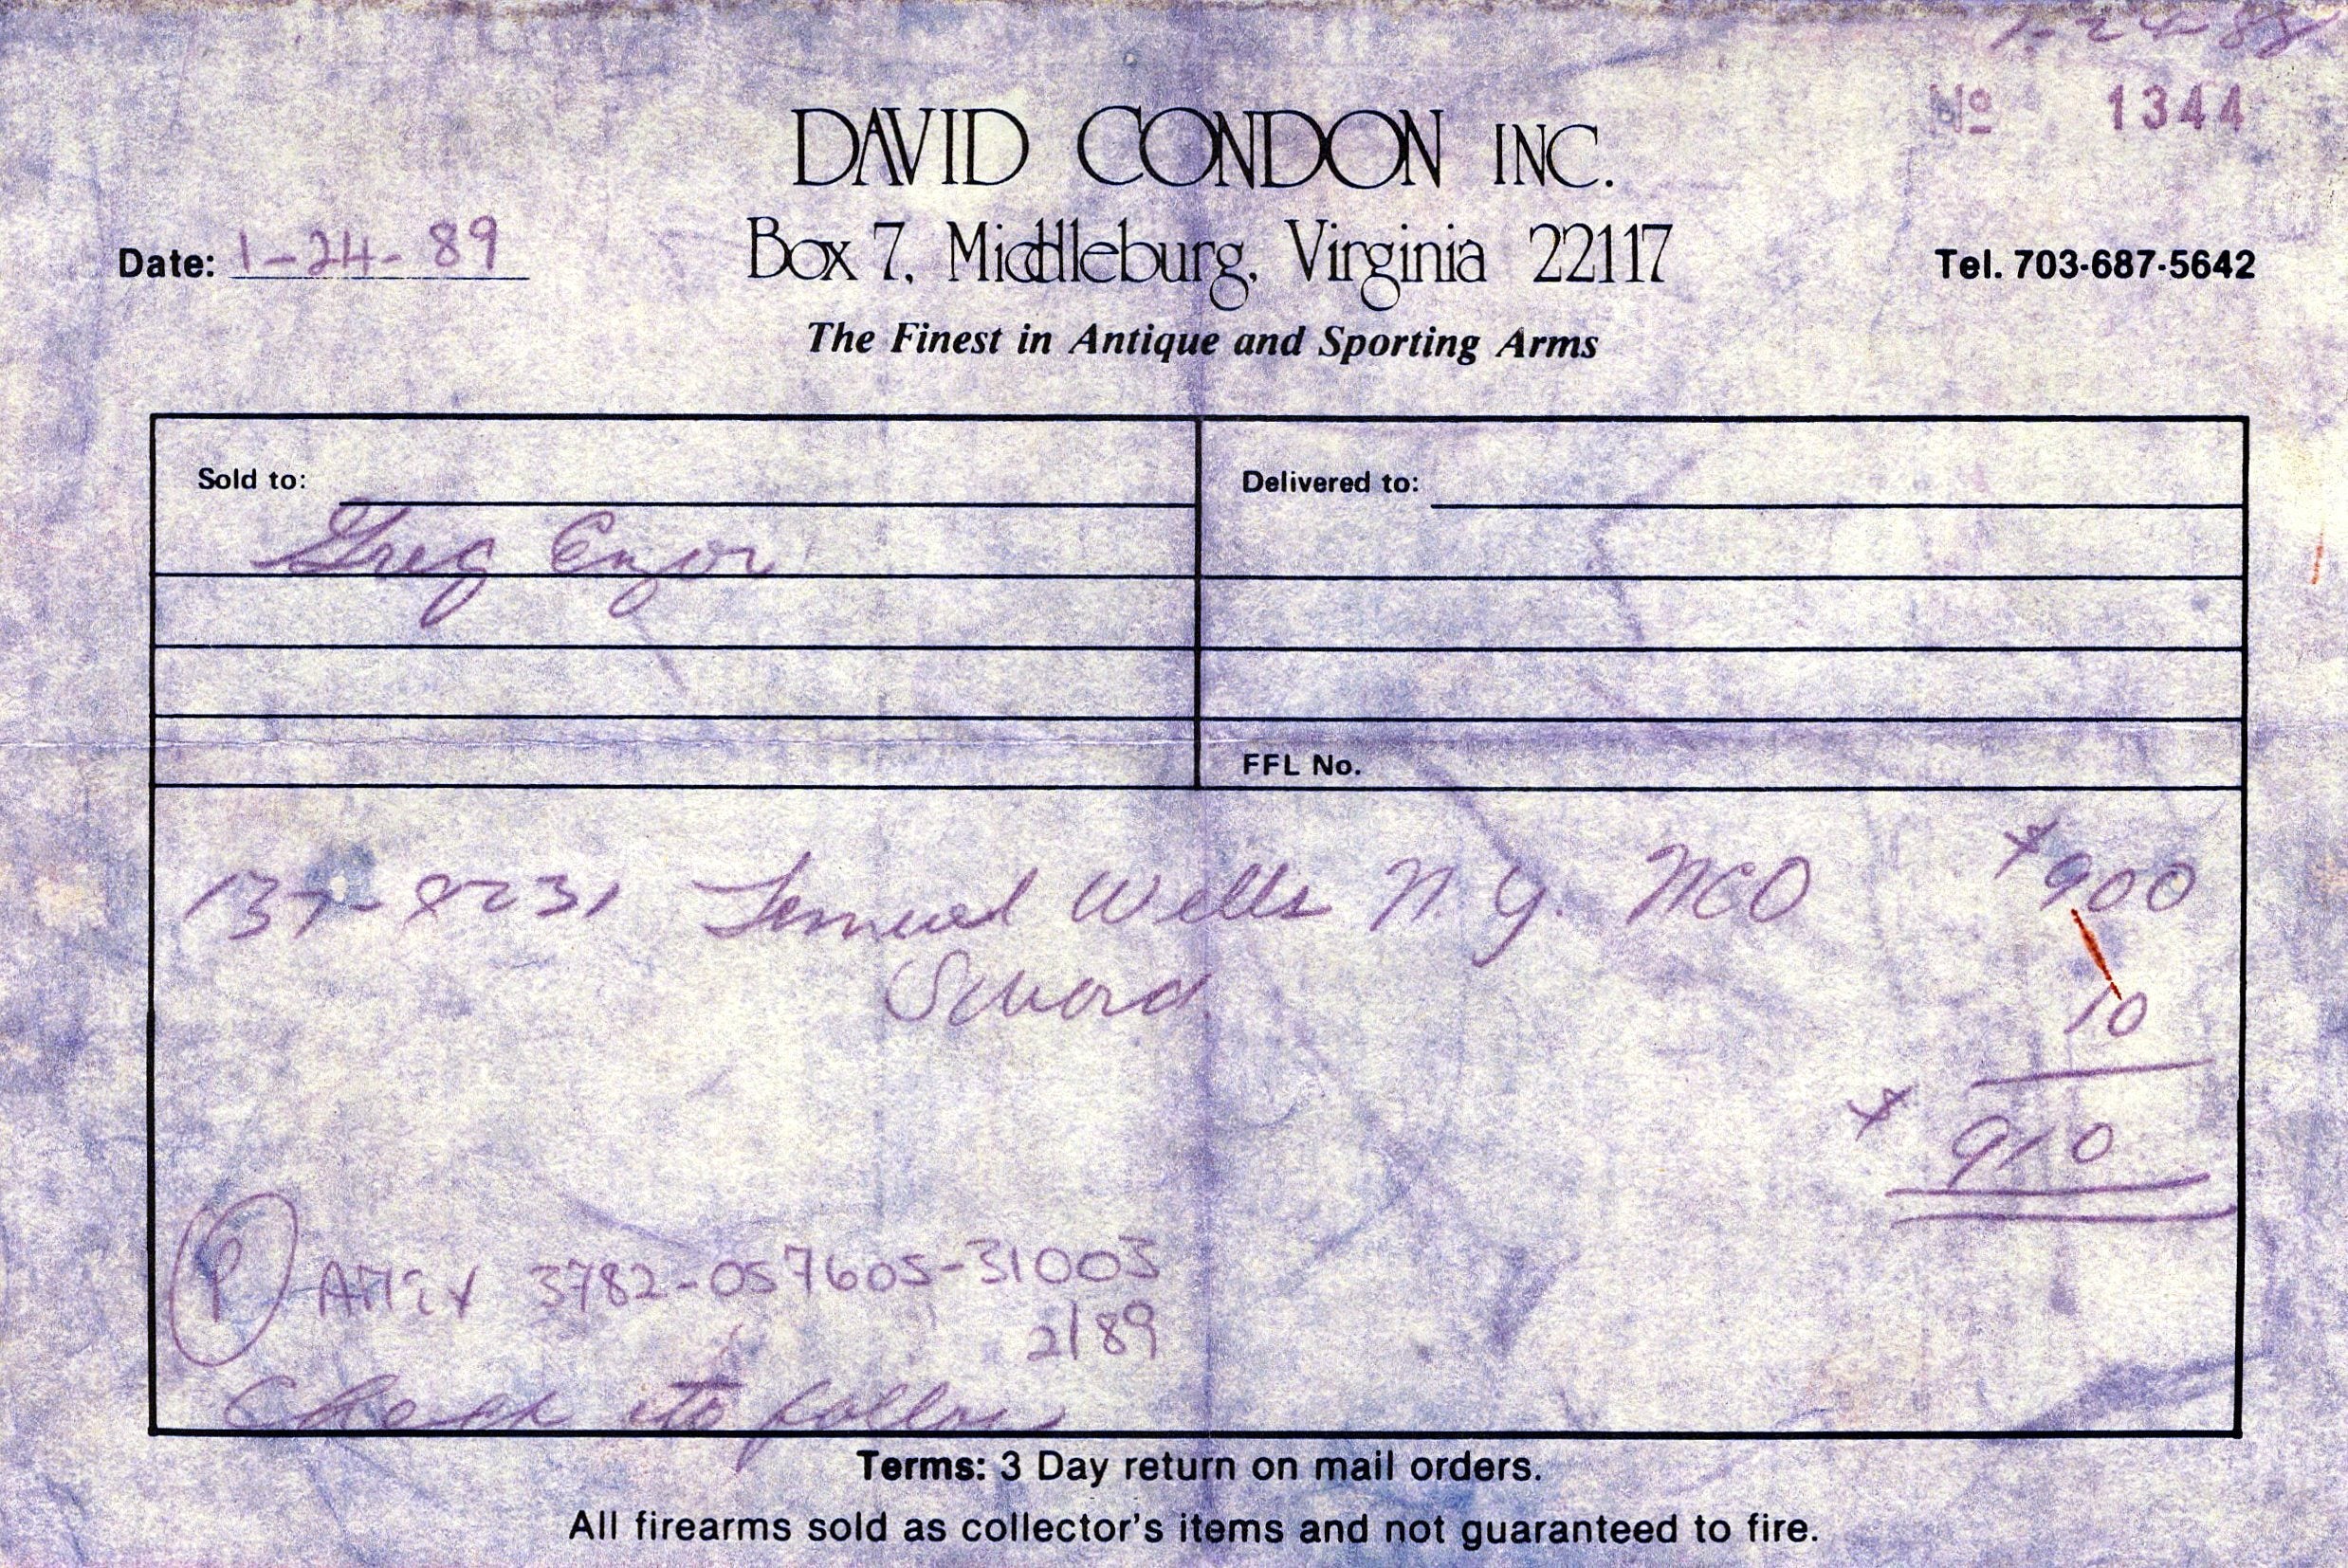 1-24-89
Nº 1344
DAVID CONDON INC.
Date: 1-24-89
Box 7, Middleburg, Virginia 22117
Tel. 703-687-5642
The Finest in Antique and Sporting Arms
Sold to:
Delivered to:
Greg Enzor
FFL No.
137-8231 Lemuel Wells N.Y. NCO $900
Sword
10
$ 910
P AMEX 3782-057605-31003
2/89
Check to follow
Terms: 3 Day return on mail orders.
All firearms sold as collector's items and not guaranteed to fire.